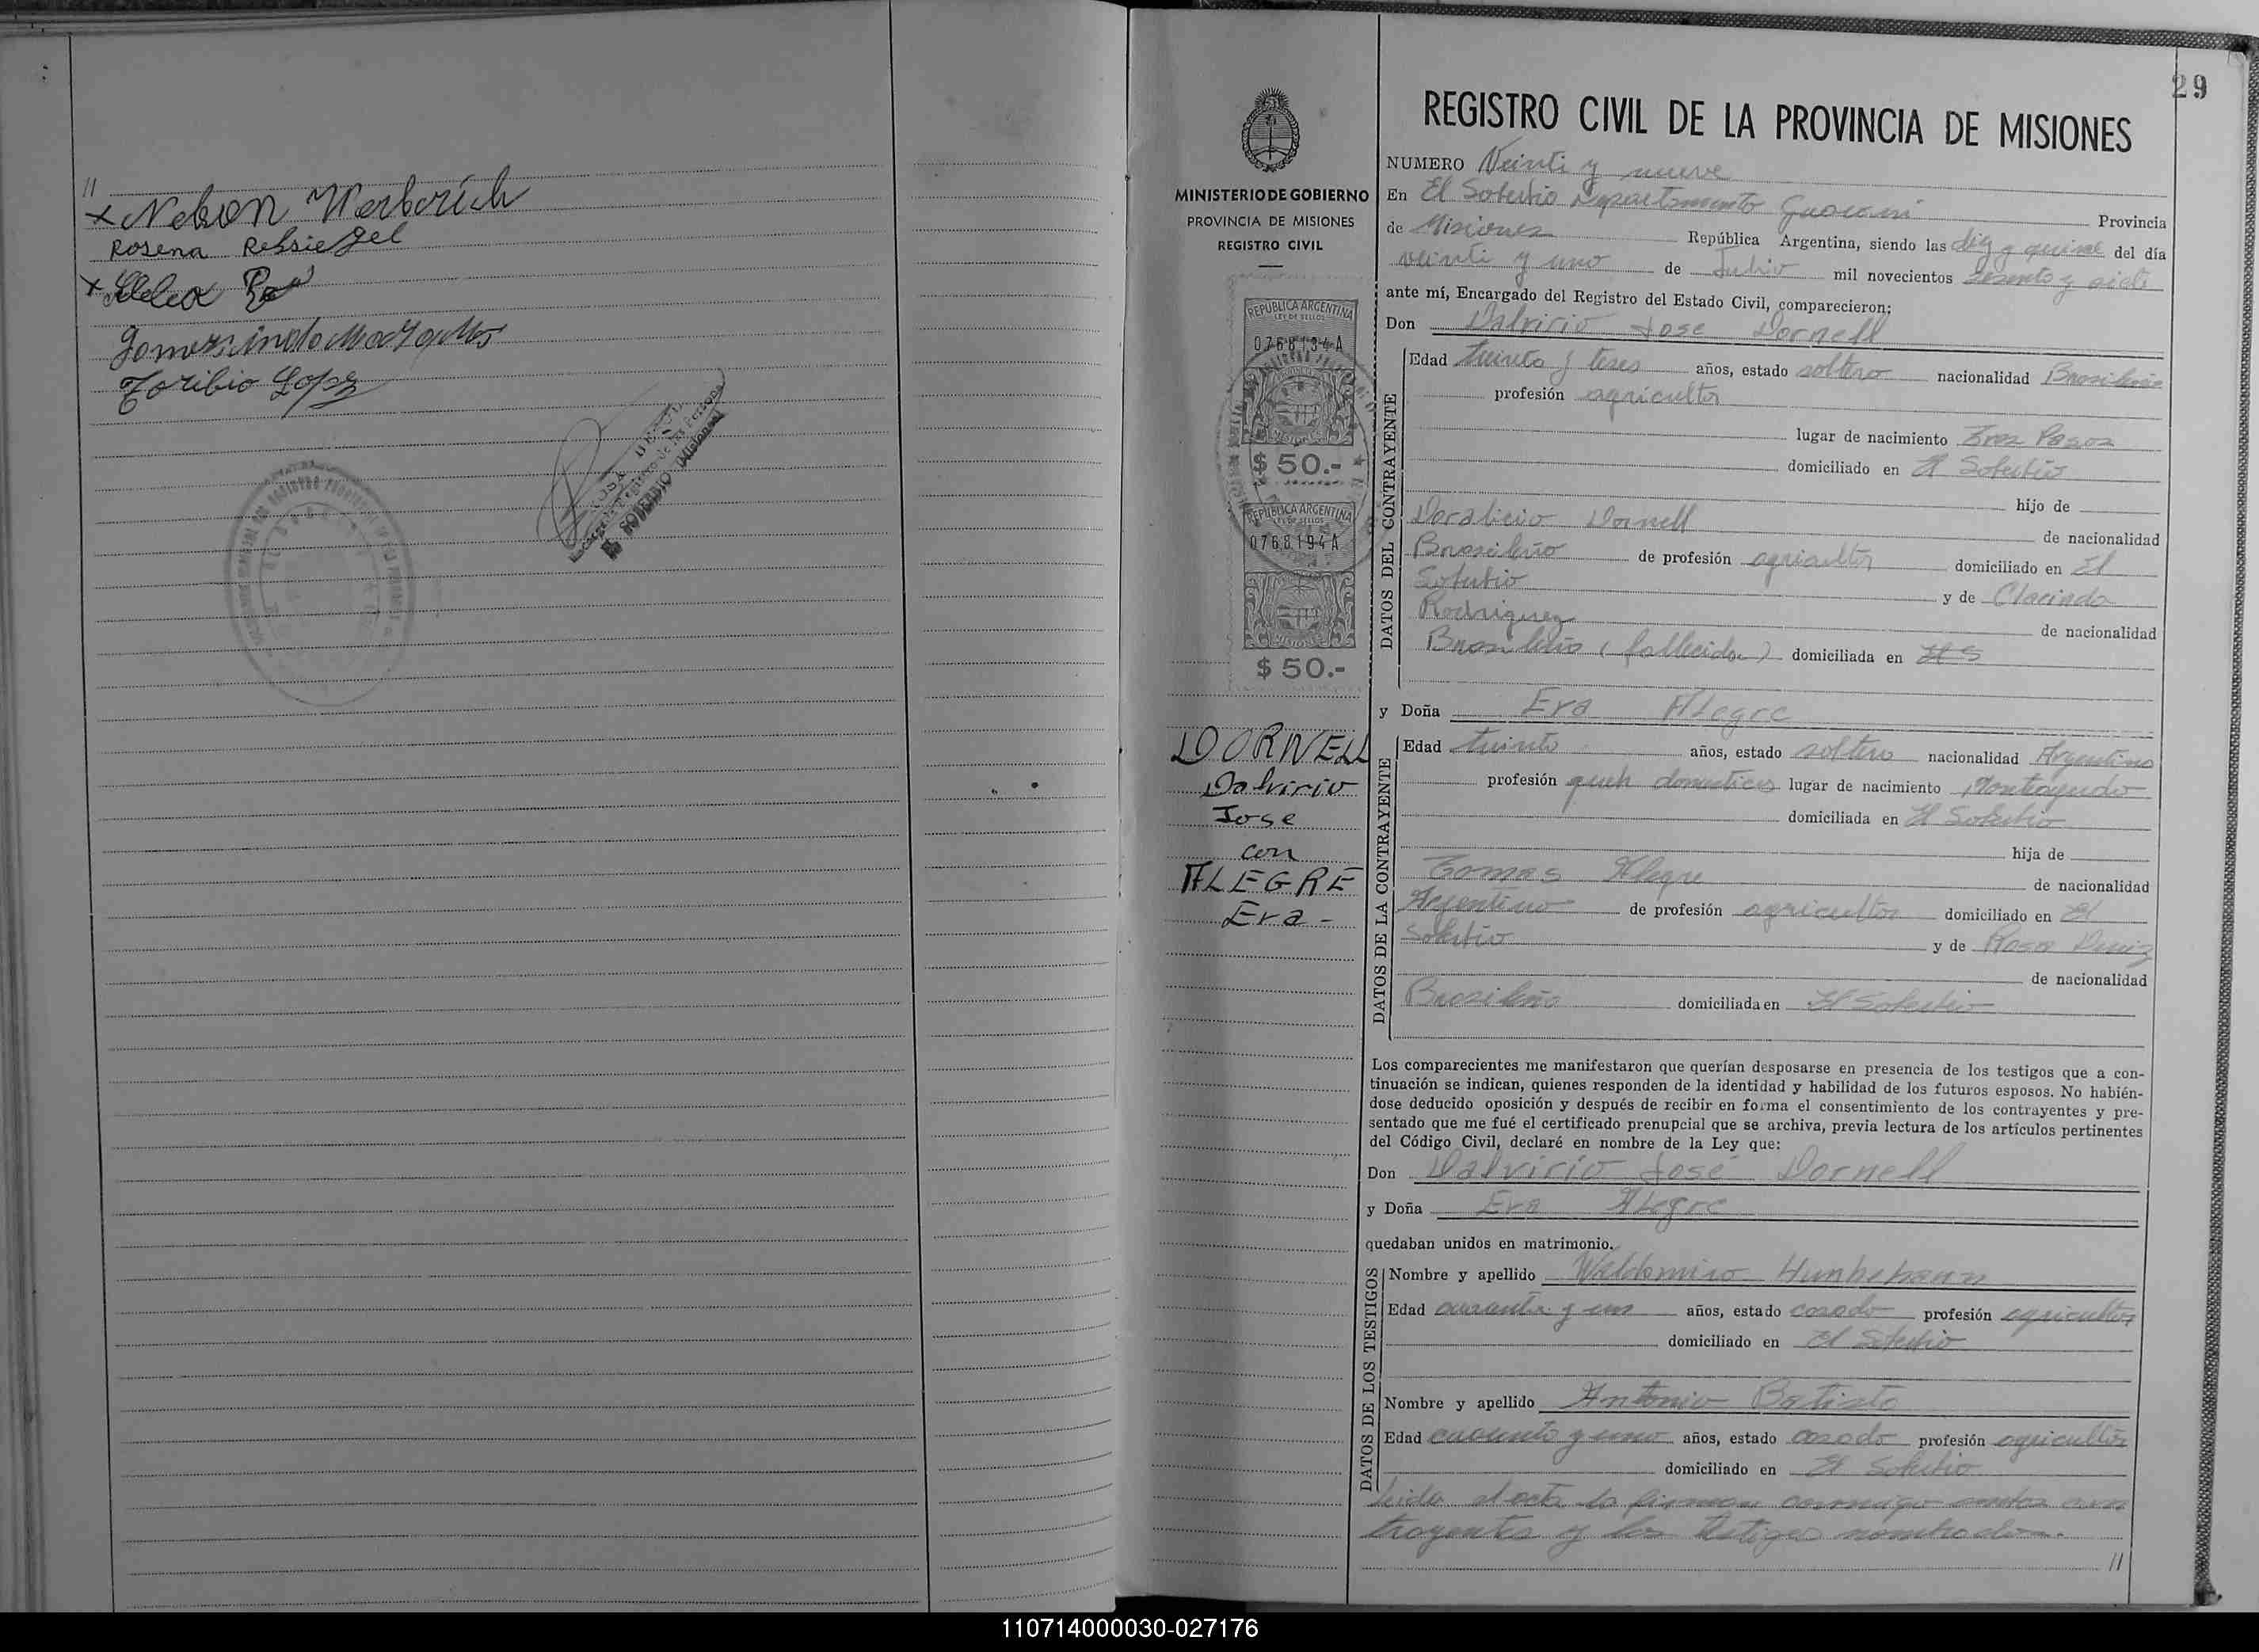 //
x Nelson Werborich
Rosena Rehsiegel
x
Toribio Lopez
EL SOBERBIO (Misiones)
29
REGISTRO CIVIL DE LA PROVINCIA DE MISIONES
MINISTERIO DE GOBIERNO
PROVINCIA DE MISIONES
REGISTRO CIVIL
REPUBLICA ARGENTINA
LEY DE SELLOS
$ 50.-
REPUBLICA ARGENTINA
LEY DE SELLOS
0768194A
$ 50.-
DORNELL
Dalvirio
Jose
con
ALEGRE
Eva -
NUMERO Veinti y nueve
En El Soberbio Departamento Guarani Provincia
de Misiones República Argentina, siendo las diez y quince del día
veinti y uno de Julio mil novecientos sesenta y siete
ante mí, Encargado del Registro del Estado Civil, comparecieron:
Don Dalvirio Jose Dornell
DATOS DEL CONTRAYENTE
Edad treinta y tres años, estado soltero nacionalidad Brasileño
profesión agricultor
lugar de nacimiento Tres Pasos
domiciliado en El Soberbio
hijo de
Doralicio Dornell de nacionalidad
Brasileño de profesión agricultor domiciliado en El
Soberbio y de Clarinda
Rodriguez de nacionalidad
Brasileña (fallecida) domiciliada en
y Doña Eva Alegre
DATOS DE LA CONTRAYENTE
Edad treinta años, estado soltera nacionalidad Argentina
profesión queh domesticos lugar de nacimiento Monteagudo
domiciliada en El Soberbio
hija de
Tomas Alegre de nacionalidad
Argentino de profesión agricultor domiciliado en El
Soberbio y de Rosa
de nacionalidad
Brasileña domiciliada en El Soberbio
Los comparecientes me manifestaron que querían desposarse en presencia de los testigos que a con-
tinuación se indican, quienes responden de la identidad y habilidad de los futuros esposos. No habién-
dose deducido oposición y después de recibir en forma el consentimiento de los contrayentes y pre-
sentado que me fué el certificado prenupcial que se archiva, previa lectura de los artículos pertinentes
del Código Civil, declaré en nombre de la Ley que:
Don Dalvirio José Dornell
y Doña Eva Alegre
quedaban unidos en matrimonio.
DATOS DE LOS TESTIGOS
Nombre y apellido Waldomiro
Edad cuarenta y un años, estado casado profesión agricultor
domiciliado en El Soberbio
Nombre y apellido Antonio Batista
Edad cuarenta y uno años, estado casado profesión agricultor
domiciliado en El Soberbio
leida el acta la firman conmigo ambos con
trayentes y los testigos nombrados.
//
110714000030-027176